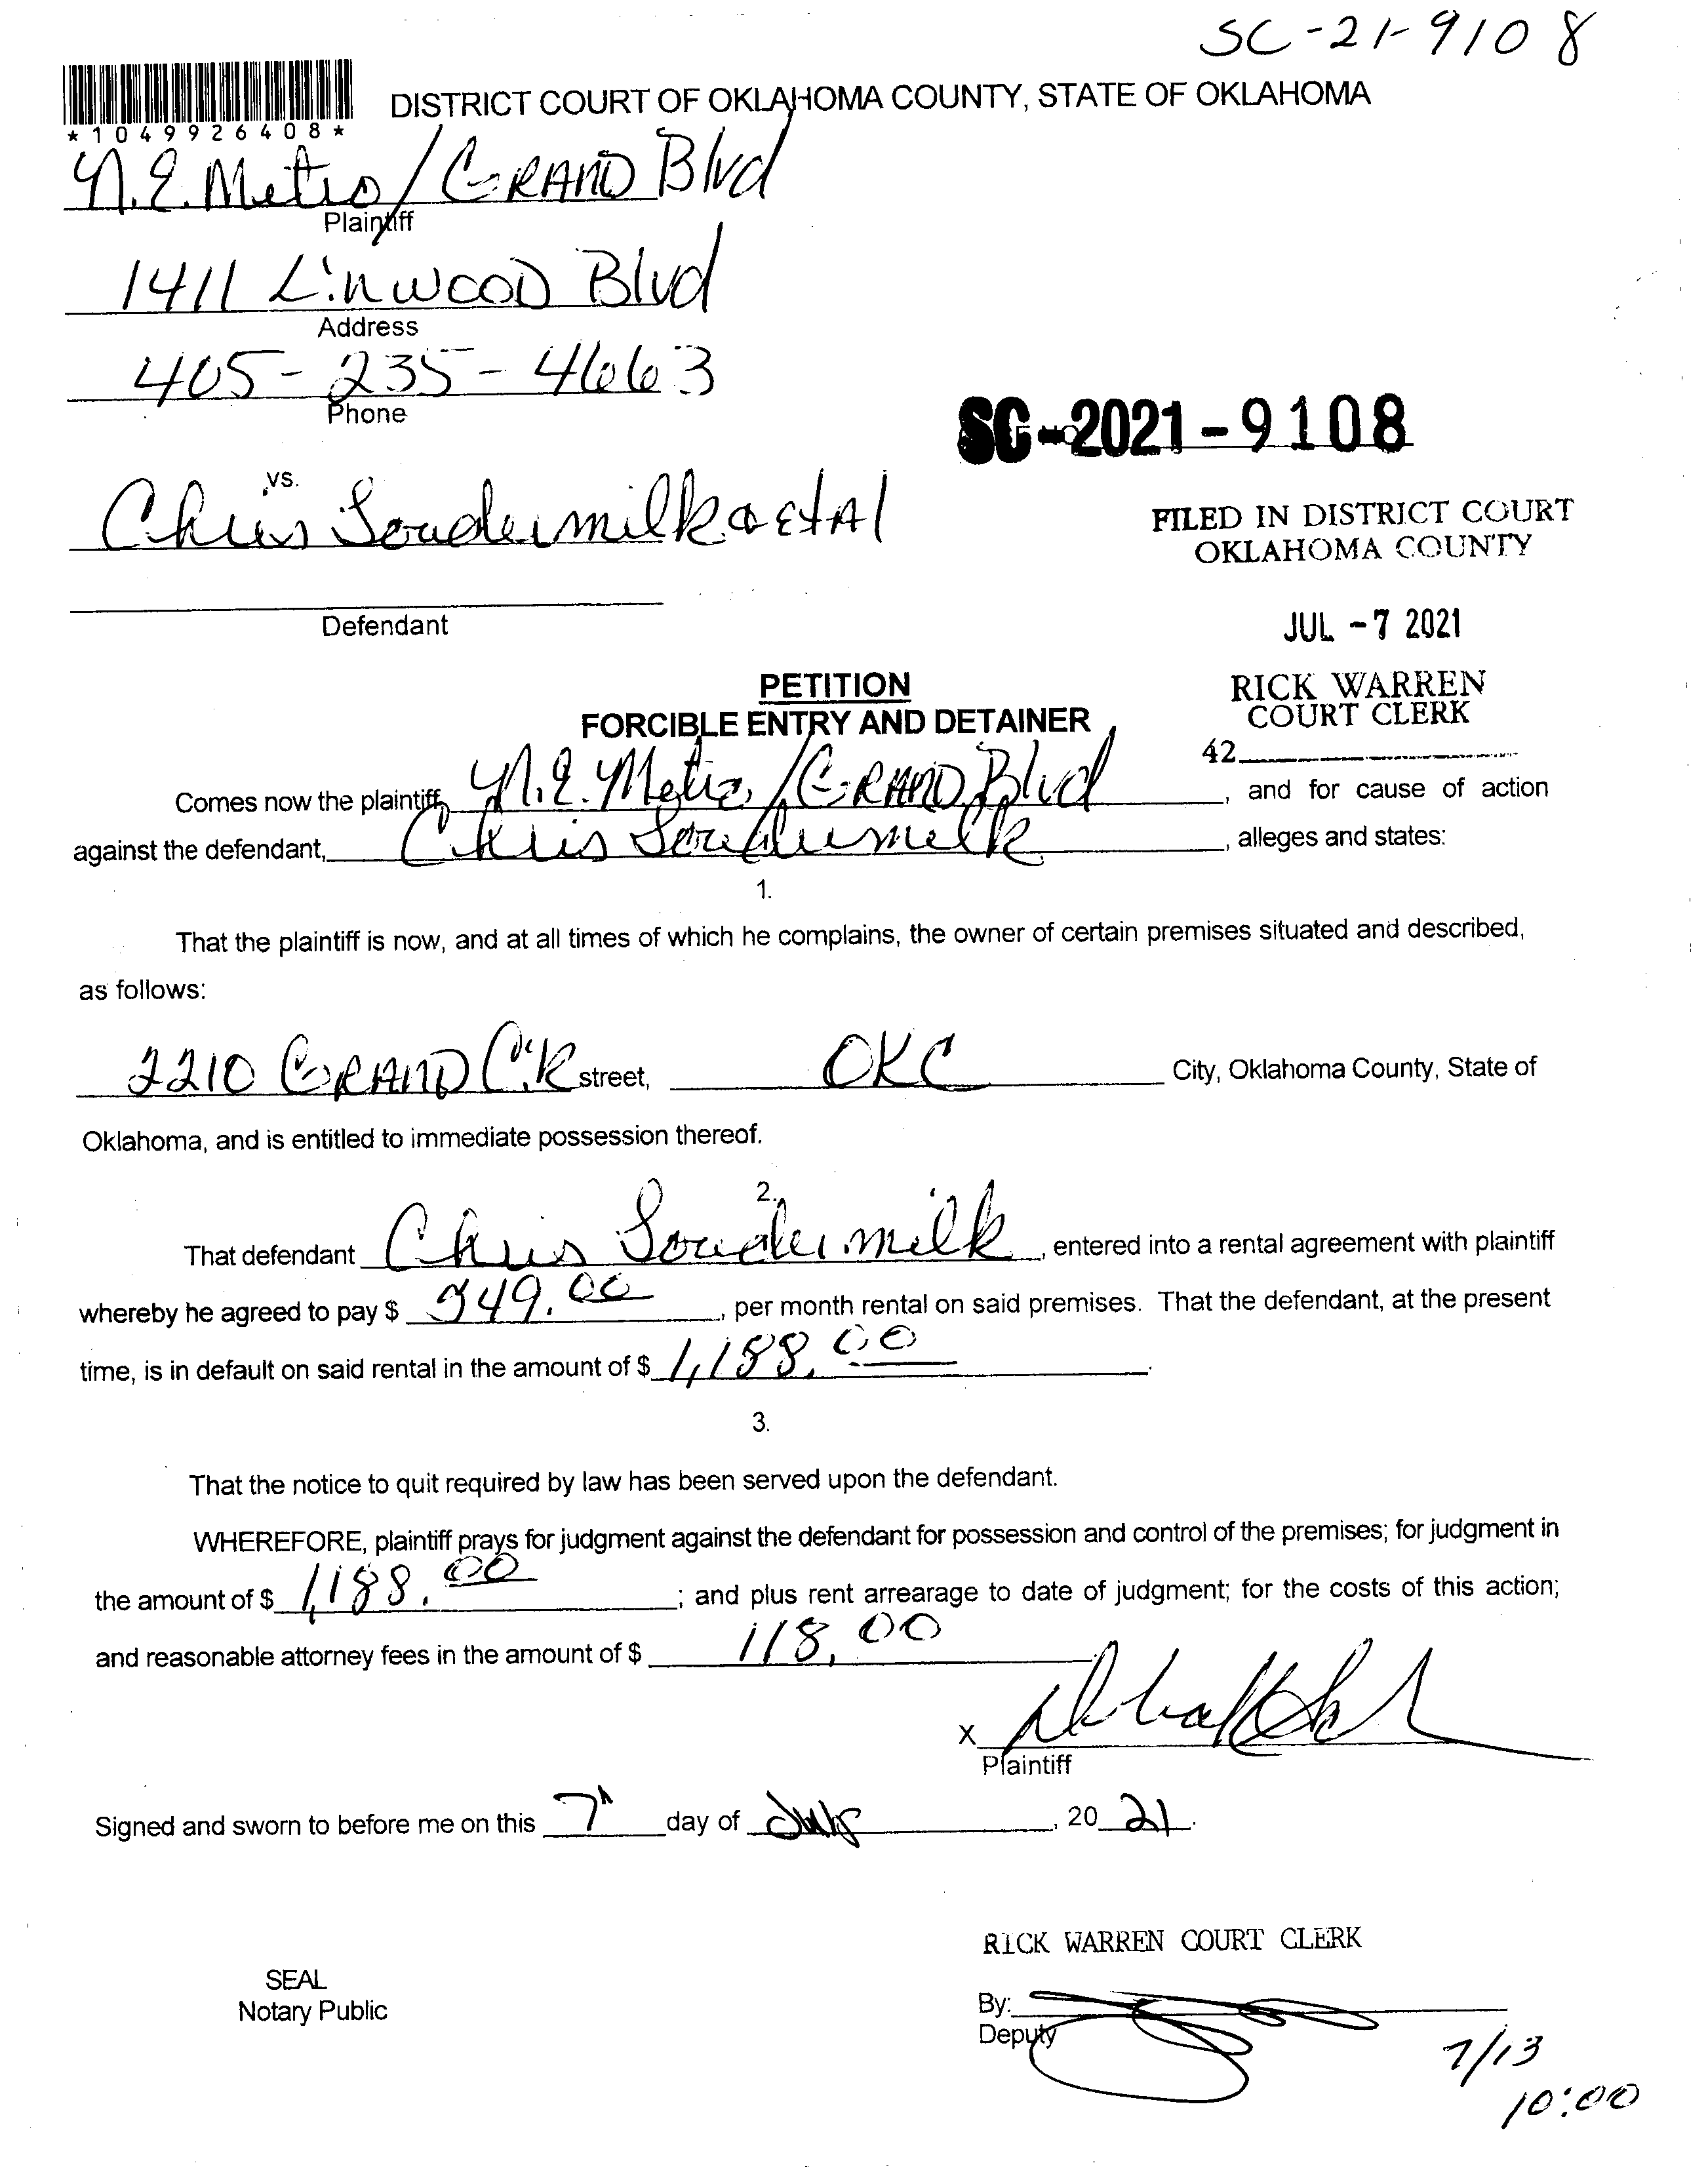 SC-21-9108
*1049926408*
DISTRICT COURT OF OKLAHOMA COUNTY, STATE OF OKLAHOMA
N.E. Metro/GRAND Blvd
Plaintiff
1411 Linwood Blvd
Address
405-235-4663
Phone
SC-2021-9108
vs.
Chris Loudermilk & etAl
FILED IN DISTRICT COURT
OKLAHOMA COUNTY
Defendant
JUL -7 2021
PETITION
FORCIBLE ENTRY AND DETAINER
RICK WARREN
COURT CLERK
42
Comes now the plaintiff, N.E. Metro/GRAND Blvd, and for cause of action
against the defendant, Chris Loudermilk, alleges and states:
1.
That the plaintiff is now, and at all times of which he complains, the owner of certain premises situated and described,
as follows:
2210 GRAND CiR street, OKC City, Oklahoma County, State of
Oklahoma, and is entitled to immediate possession thereof.
2.
That defendant Chris Loudermilk, entered into a rental agreement with plaintiff
whereby he agreed to pay $ 49.00, per month rental on said premises. That the defendant, at the present
time, is in default on said rental in the amount of $ 1,188.00.
3.
That the notice to quit required by law has been served upon the defendant.
WHEREFORE, plaintiff prays for judgment against the defendant for possession and control of the premises; for judgment in
the amount of $ 1,188.00; and plus rent arrearage to date of judgment; for the costs of this action;
and reasonable attorney fees in the amount of $ 118.00
X
Plaintiff
Signed and sworn to before me on this 7th day of July, 2021.
RICK WARREN COURT CLERK
SEAL
Notary Public
By:
Deputy
7/13
10:00